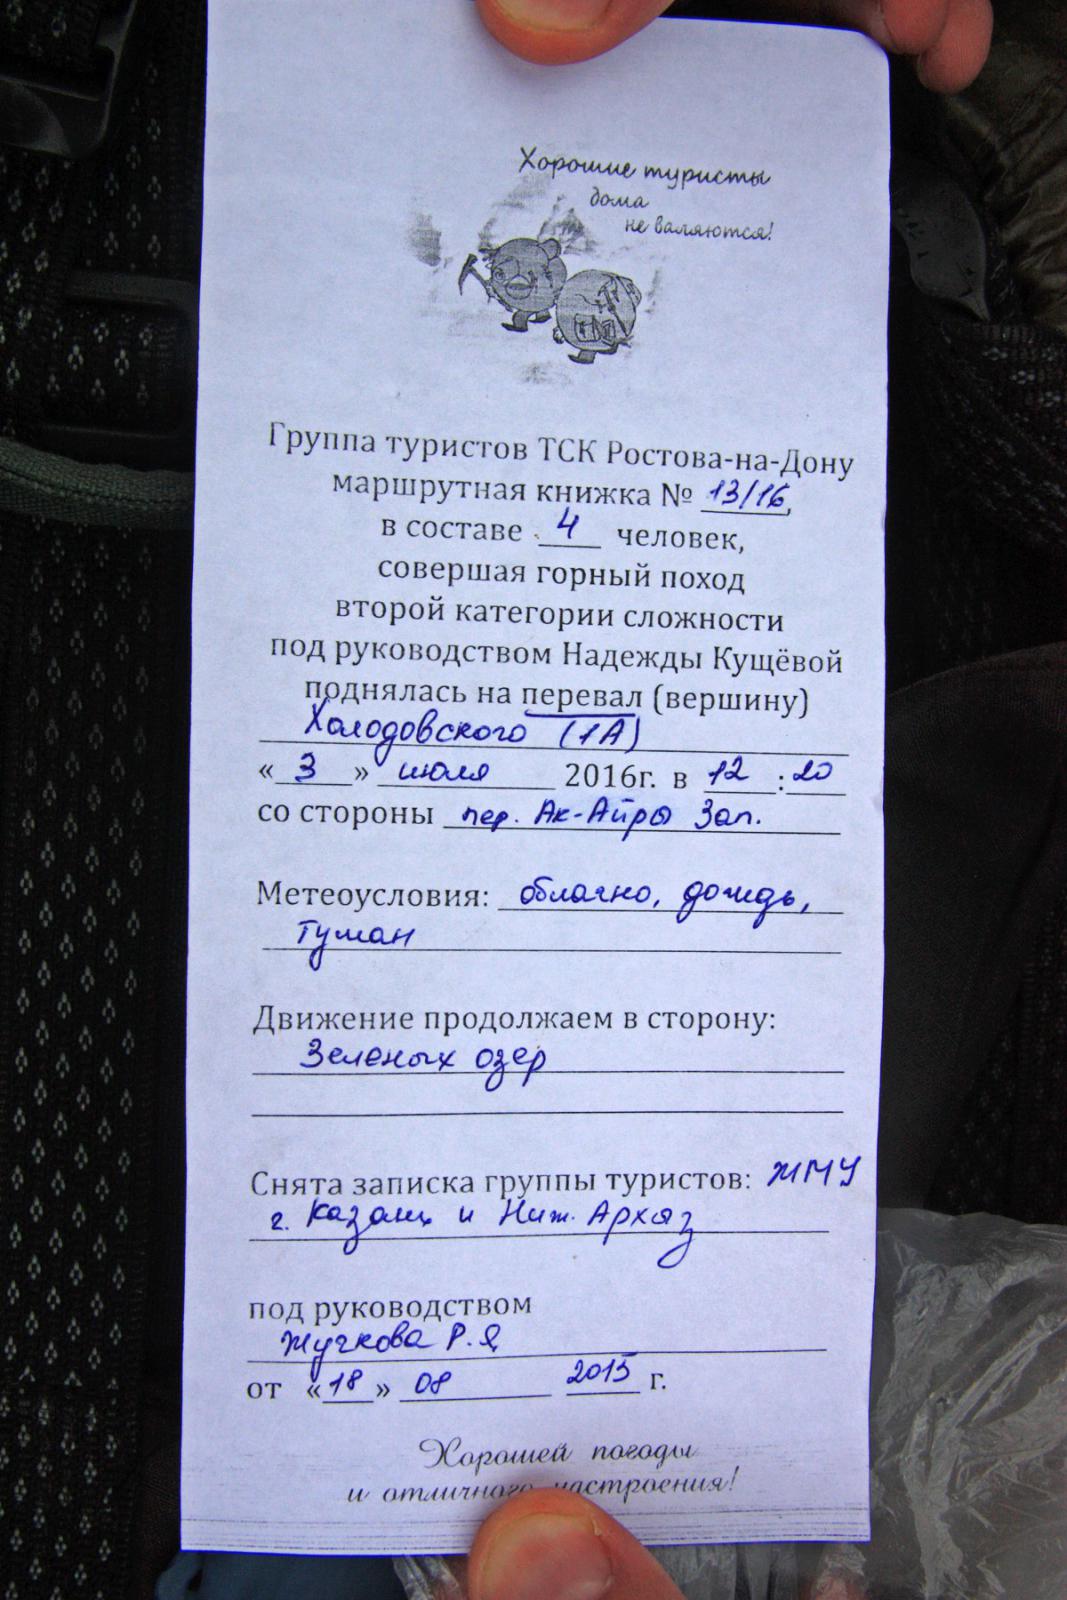 Хорошие туристы
дома
не валяются!
Группа туристов ТСК Ростова-на-Дону
маршрутная книжка № 13/16,
в составе 4 человек,
совершая горный поход
второй категории сложности
под руководством Надежды Кущёвой
поднялась на перевал (вершину)
Холодовского (1А)
« 3 » июля 2016г. в 12 : 20
со стороны пер. Ак-Айры Зап.
Метеоусловия: облачно, дождь,
туман
Движение продолжаем в сторону:
Зеленых озер
Снята записка группы туристов:
г. Казань и Ниж. Архыз
под руководством
Жучкова Р.Я
от «18» 08 2015 г.
Хорошей погоды
и отличного настроения!